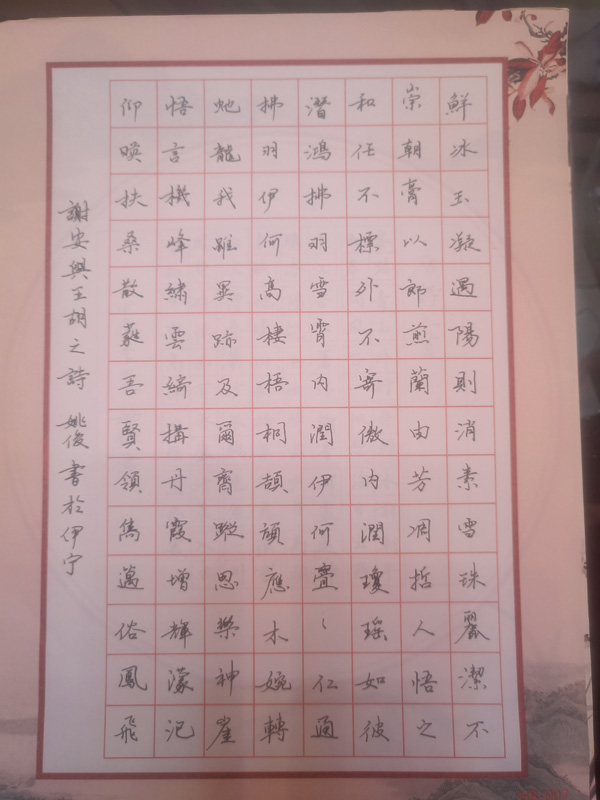 鮮冰玉凝遇陽則消素雪珠麗潔不
崇朝膏以郎煎蘭由芳凋哲人悟之
和任不標外不寄傲内潤瓊瑶如彼
潛鴻拂羽雪霄内潤伊何亹〻仁通
拂羽伊何高棲梧桐頡頏應木婉轉
虵龍我雖異跡及爾齊蹤思樂神崖
悟言機峰繡雲綺構丹霞增輝濛汜
仰暎扶桑散蕤吾賢領雋邁俗鳳飛
謝安與王胡之詩 姚俊書於伊宁